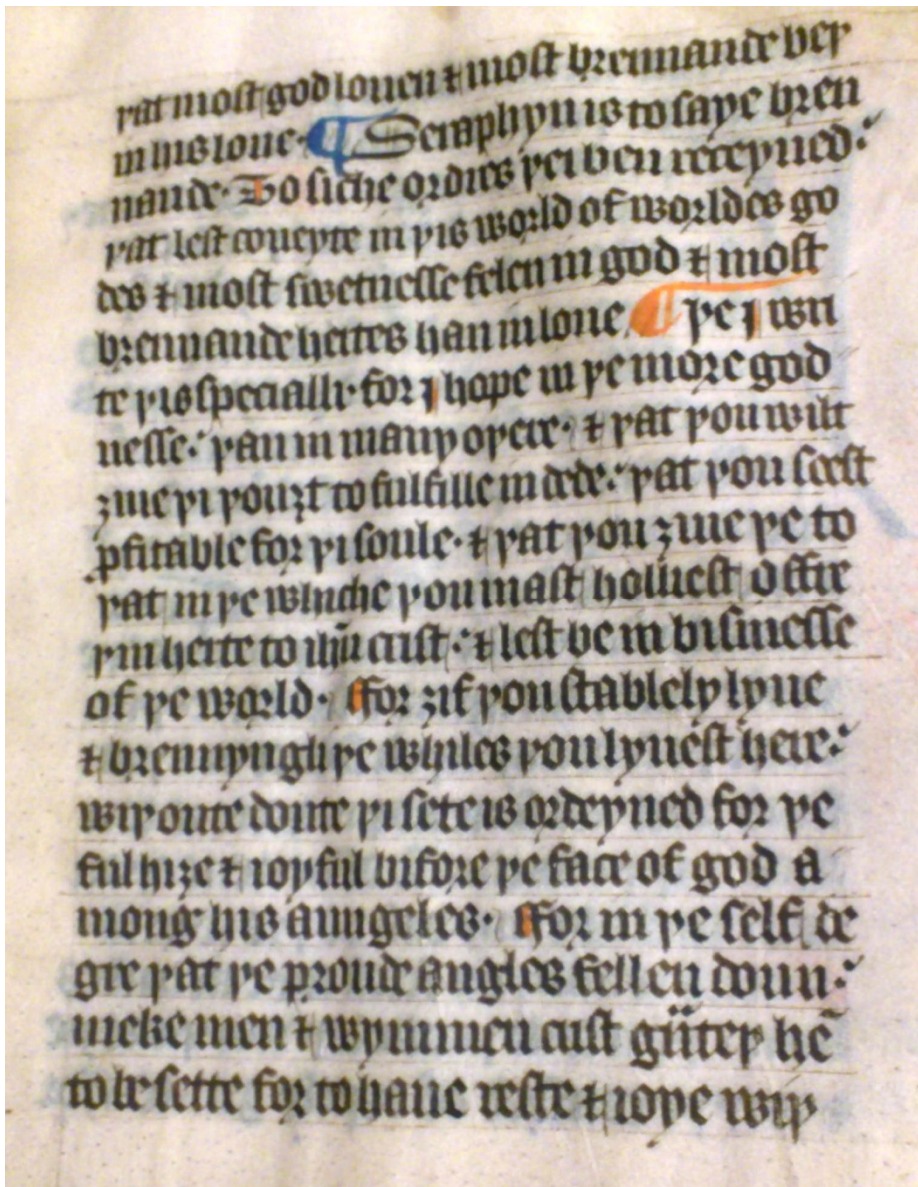 þat most god louen & most brennande beþ
in his loue· ¶ Seraphyn is to saye bren
nande· To siche ordres þei ben receyued:
þat lest coueyte in þis world of worldes go
des & most swetnesse felen in god & most
brennande hertes han in loue ¶ þe I wri
te þis specialli· for I hope in þe more god
nesse: þan in many oþere· & þat þou wilt
ȝiue þi þouȝt to fulfille in dede: þat þou seest
ꝓfitable for þi soule· & þat þou ȝiue þe to
þat in þe whiche þou mast holliest offre
þin herte to ihū crist: & lest be in bisinesse
of þe world· ffor ȝif þou stablely lyue
& brennyngli þe whiles þou lyuest here:
wiþ oute doute þi sete is ordeyned for þe
ful hiȝe & ioyful bifore þe face of god a
mong his aungeles· ffor in þe self de
gre þat þe proude angles fellen doun:
meke men & wymmen crist gūteþ hē
to be sette for to haue reste & ioye wiþ